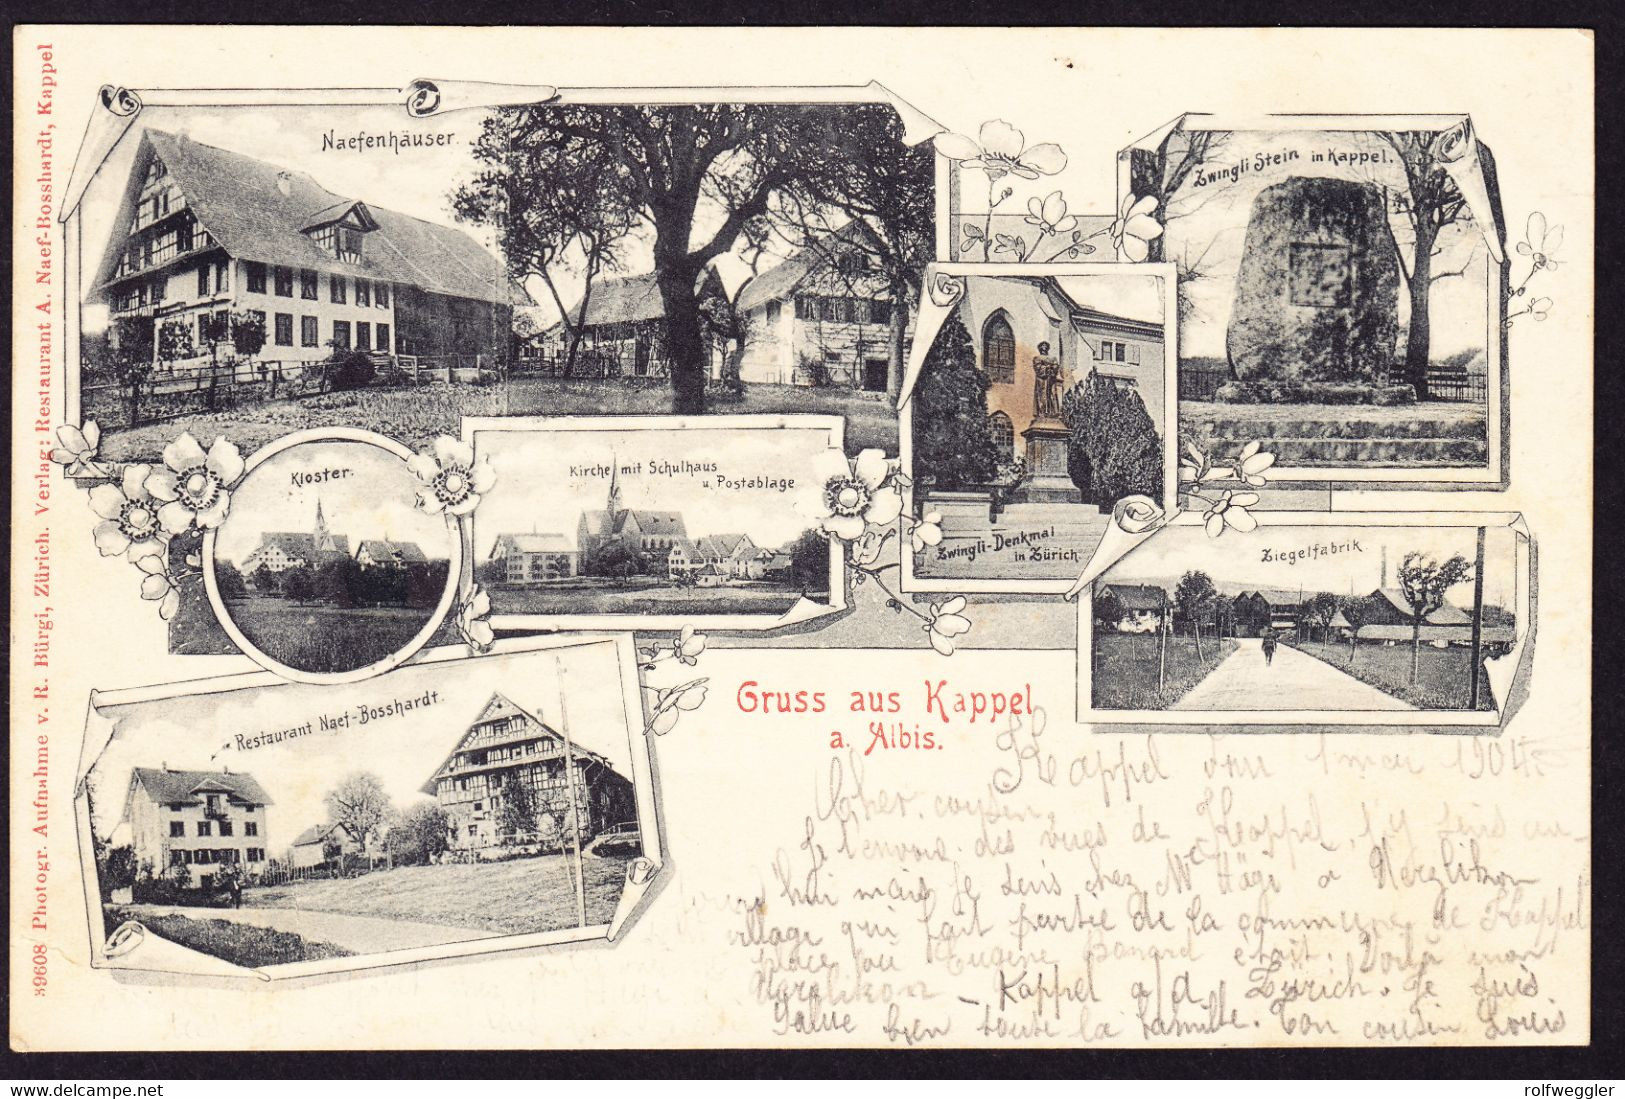 39608 Photogr. Aufnahme v. R. Bürgi, Zürich. Verlag: Restaurant A. Naef-Bosshardt, Kappel
Naefenhäuser.
Zwingli Stein in Kappel.
Kloster.
Kirche mit Schulhaus
u. Postablage
Zwingli-Denkmal
in Zürich
Ziegelfabrik
Restaurant Naef-Bosshardt.
Gruss aus Kappel
a. Albis.
Kappel 1 mai 1904
Cher cousin
Je t'envois des vues de Kappel,
mais je suis chez Mr Hägi a Herzlikon
village qui fait partie de la commune de Kappel
place ou Eugène était. Voilà mon
Herzlikon – Kappel a/d Zürich. Je suis
Salue bien toute la famille. Ton cousin Louis
rolfweggler